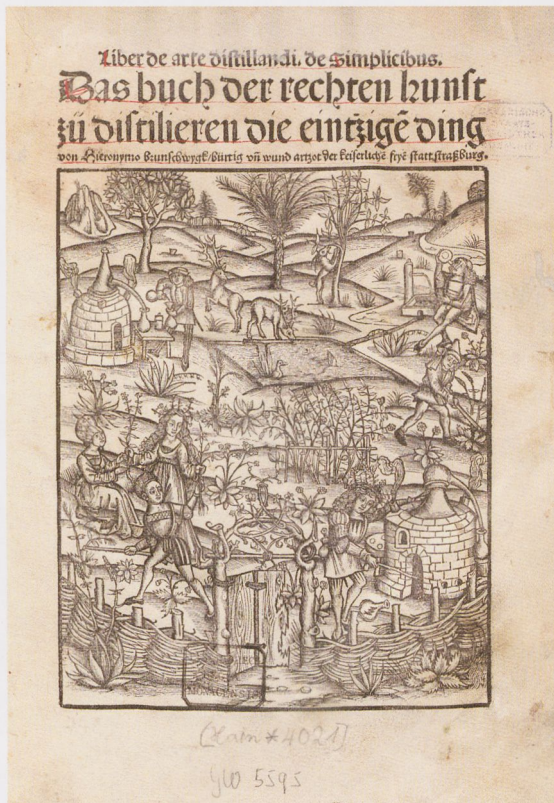 Liber de arte distillandi. de Simplicibus.
Das buch der rechten kunst
zü distilieren die eintzigē ding
von Hieronymo brunschwygk/bürtig vñ wund artzot der keiserlichē fryē statt straßburg.
MONACENSIS
(Hain *4021)
GW 5595